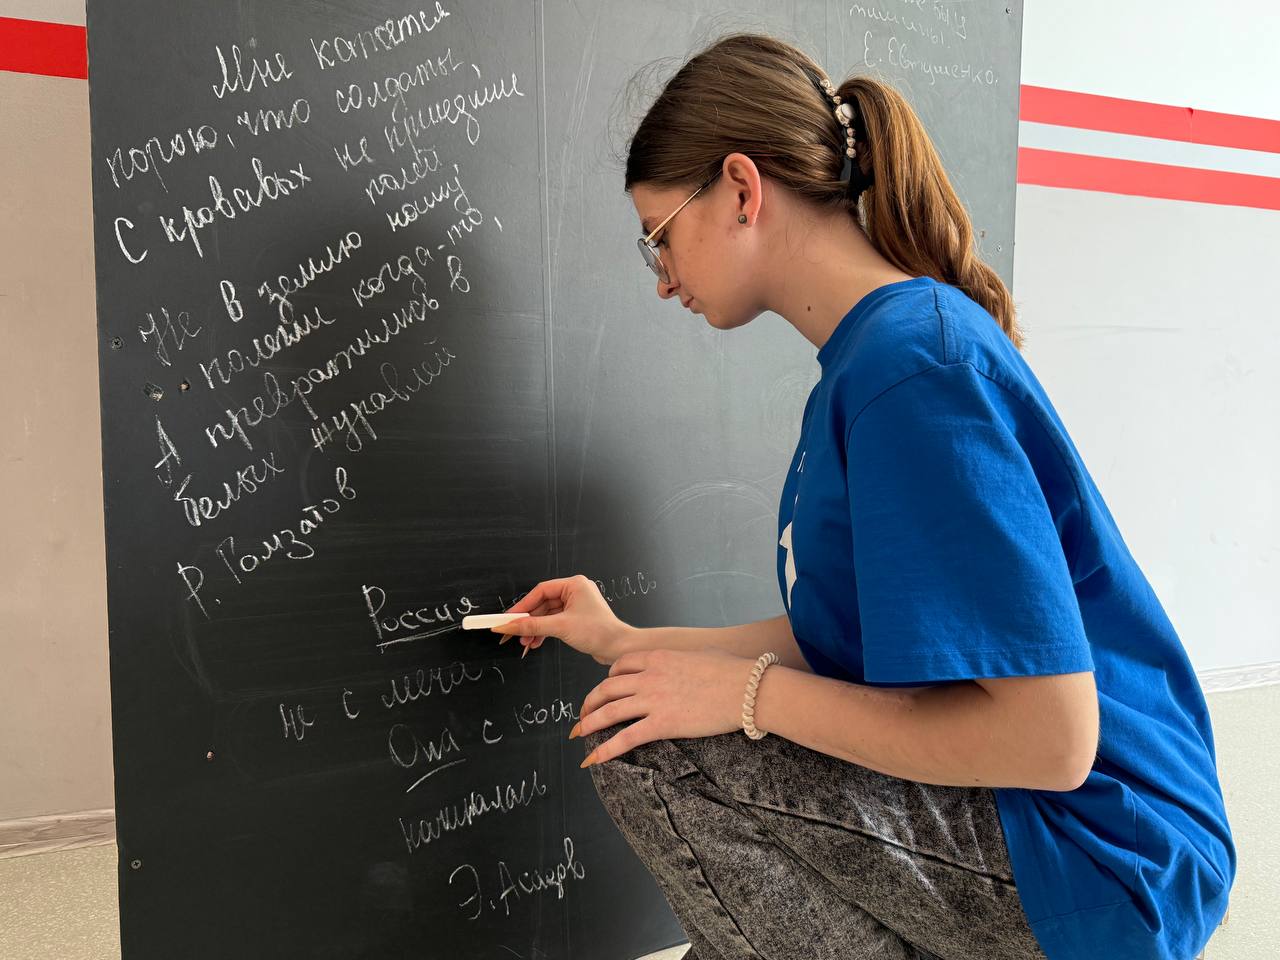 Мне кажется
порою, что солдаты,
С кровавых не пришедшие
полей,
Не в землю нашу
полегли когда-то,
А превратились в
белых журавлей
Р. Гамзатов
тишины.
Е. Евтушенко.
Россия
не с меча,
Она с косы
начиналась
Э. Асадов